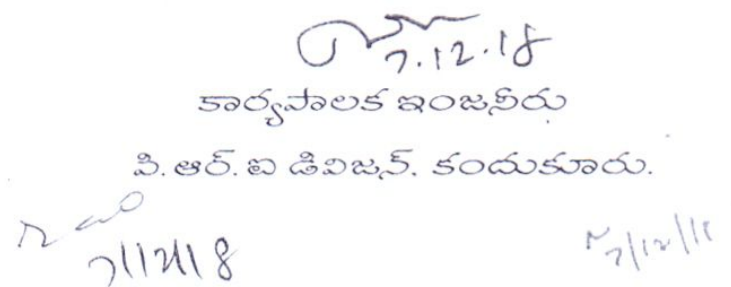 7.12.18
కార్యపాలక ఇంజనీరు
పి. ఆర్. ఐ డివిజన్. కందుకూరు.
7/12/18
7/12/18